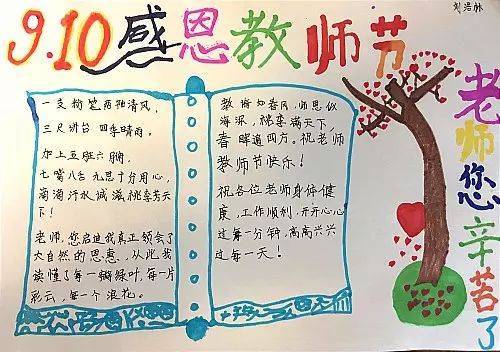 9.10感恩教师节
刘浩林
老师您辛苦了
一支粉笔两袖清风，
三尺讲台 四季晴雨，
加上五脏六腑，
七嘴八舌 九思十分用心，
滴滴汗水 诚滋桃李芳天
下！
老师，您启迪我真正领会了
大自然的恩惠，从此我
读懂了每一瓣绿叶，每一片
彩云，每一个浪花。
教诲如春风，师恩似
海深，桃李满天下，
春晖遍四方。祝老师
教师节快乐！
祝各位老师身体健
康，工作顺利，开开心心
过每一分钟，高高兴兴
过每一天！